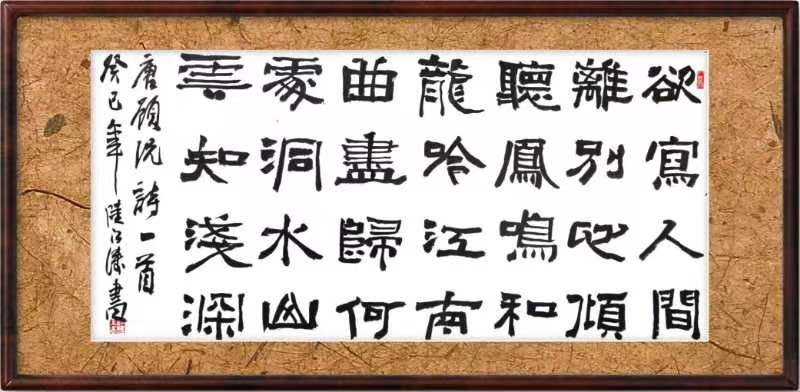 欲寫人間
離別心傾
聽鳳鳴和
龍吟江南
曲盡歸何
處洞水山
雲知淺深
唐顧況詩一首
癸巳年陸書